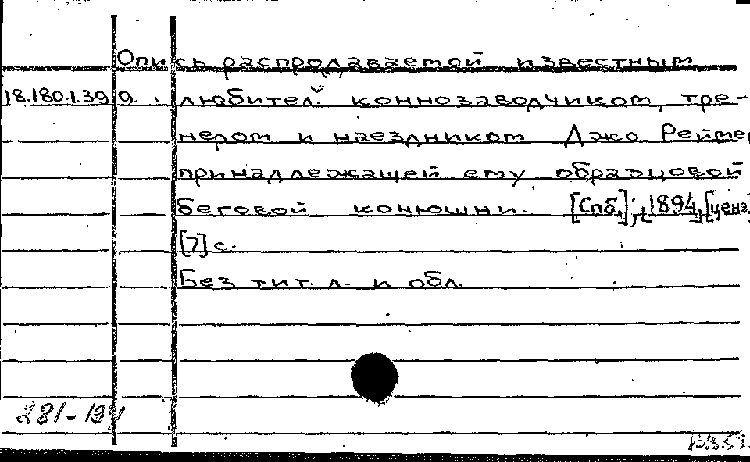 Опись распродаваемой известным
18.180.1.39 а. любител. коннозаводчиком, тре-
нером и наездником Джо Реймер
принадлежащей ему образцовой
беговой конюшни. [Спб.], 1894, [ценз.
[7] с.
Без тит. л. и обл.
281-194